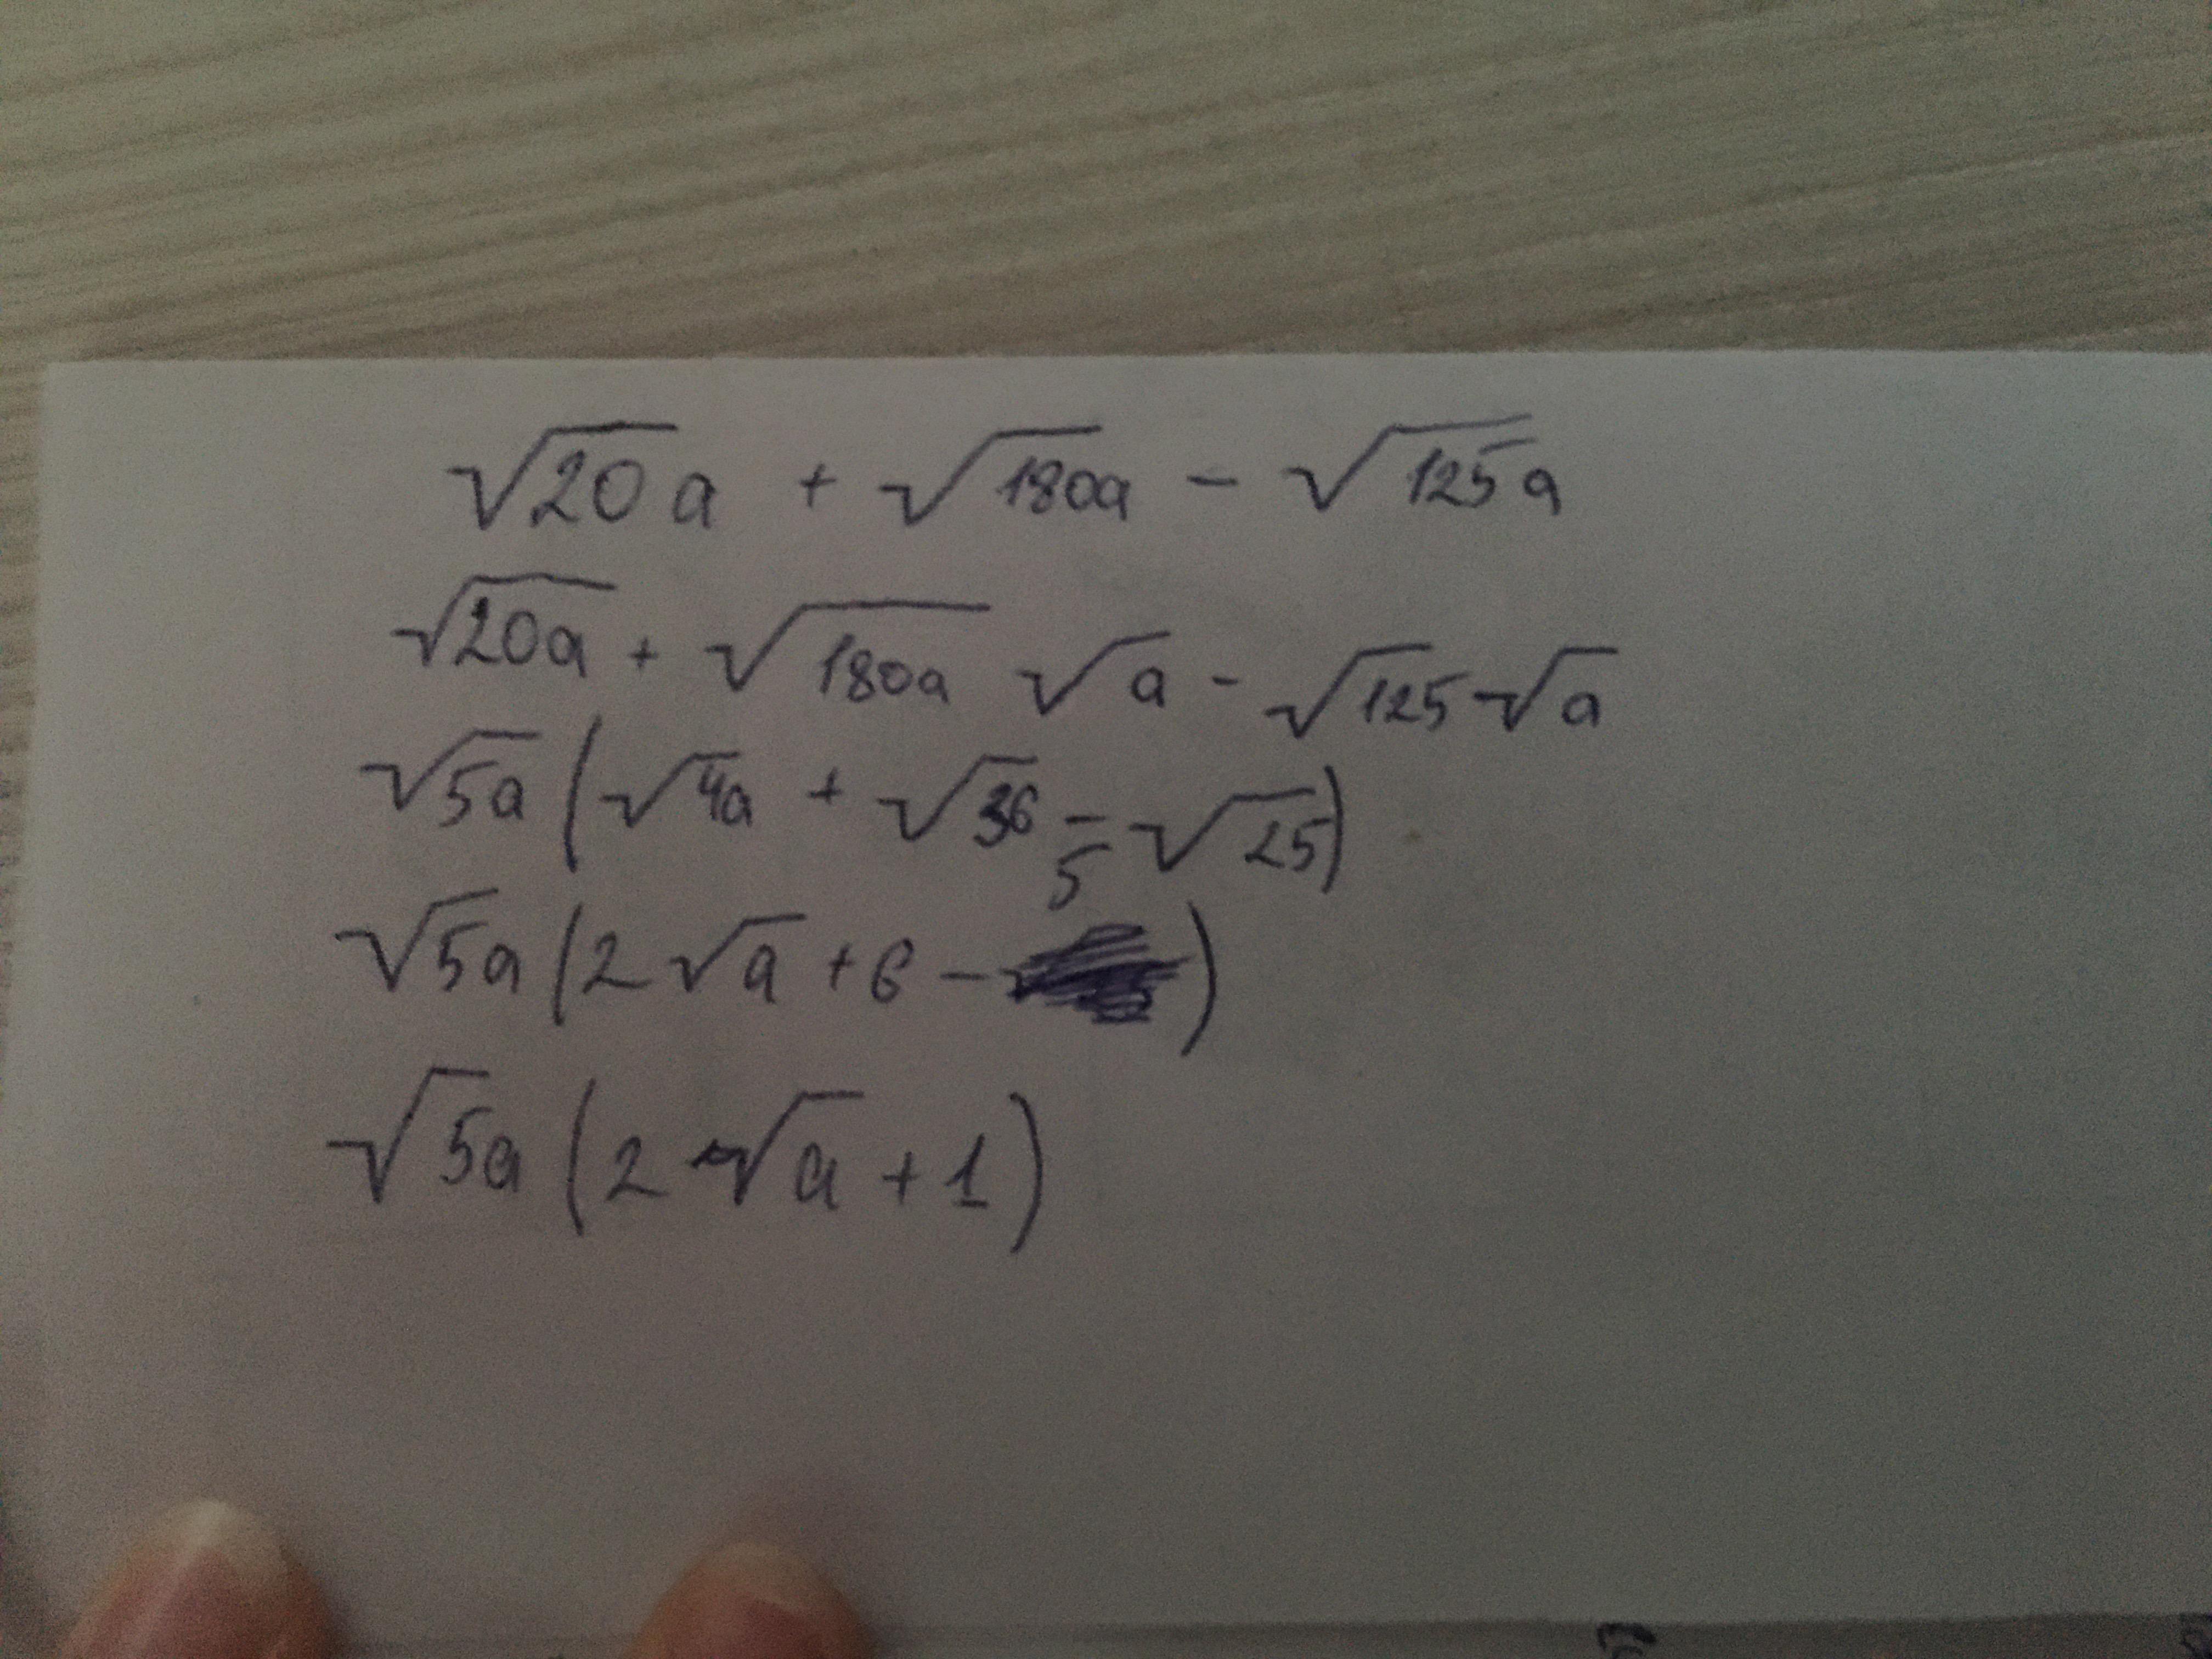 √20 a + √180a - √125a
√20a + √180a √a - √125 √a
√5a (√4a + √36 - √25)
5
√5a (2 √a + 6 - )
√5a (2 √a + 1)